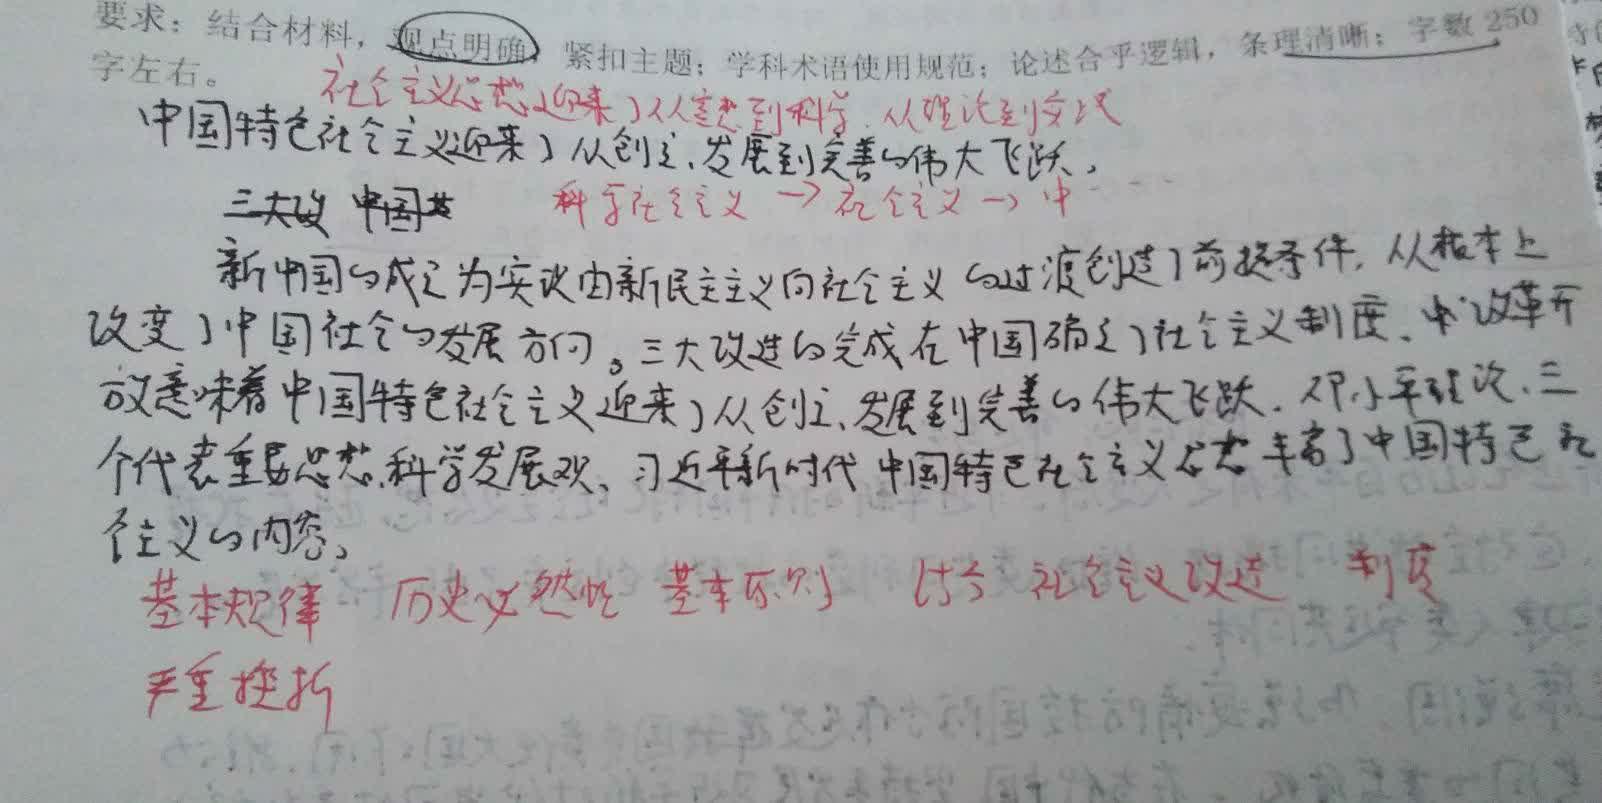 要求：结合材料，观点明确，紧扣主题；学科术语使用规范；论述合乎逻辑，条理清晰；字数250
字左右。
社会主义思想迎来了从空想到科学、从理论到实践
中国特色社会主义迎来了从创立、发展到完善的伟大飞跃。
三大改 中国共
科学社会主义 → 社会主义 → 中……
新中国的成立为实议由新民主主义向社会主义的过渡创造了前提条件，从根本上
改变了中国社会的发展方向。三大改造的完成在中国确立了社会主义制度、改革开
放意味着中国特色社会主义迎来了从创立、发展到完善的伟大飞跃。邓小平理论、三
个代表重要思想、科学发展观、习近平新时代中国特色社会主义思想丰富了中国特色社
会主义的内容。
基本规律 历史必然性 基本原则 社会主义改造 制度
严重挫折